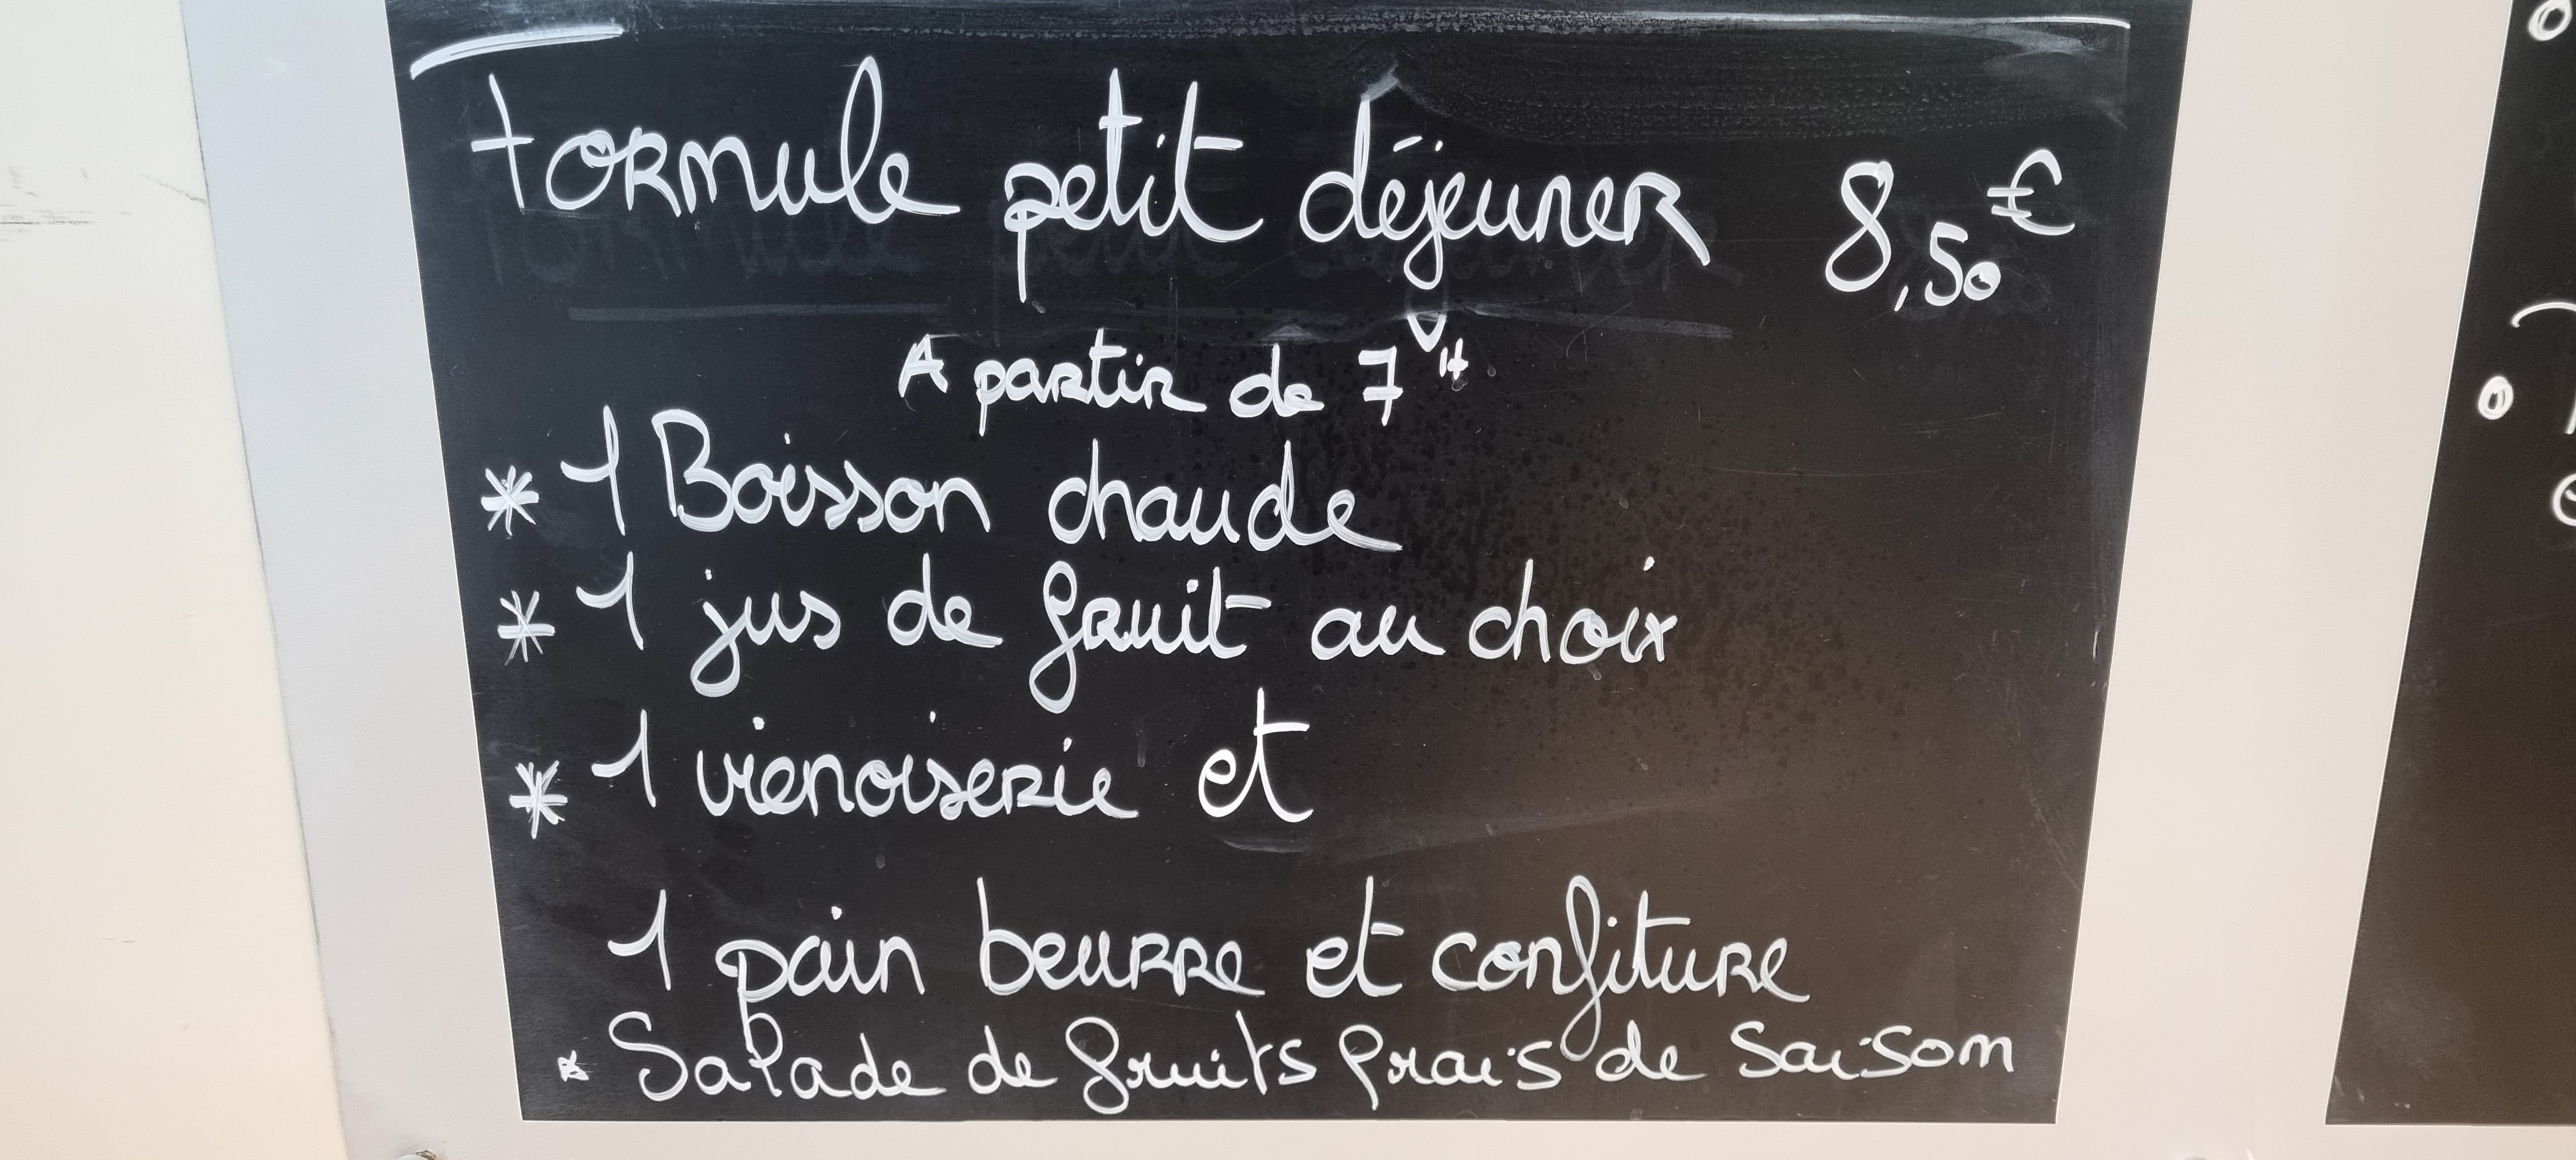 Formule petit déjeuner 8,50€
A partir de 7H
* 1 Boisson chaude
* 1 jus de fruit au choix
* 1 vienoiserie et
1 pain beurre et confiture
* Salade de fruits frais de Saison